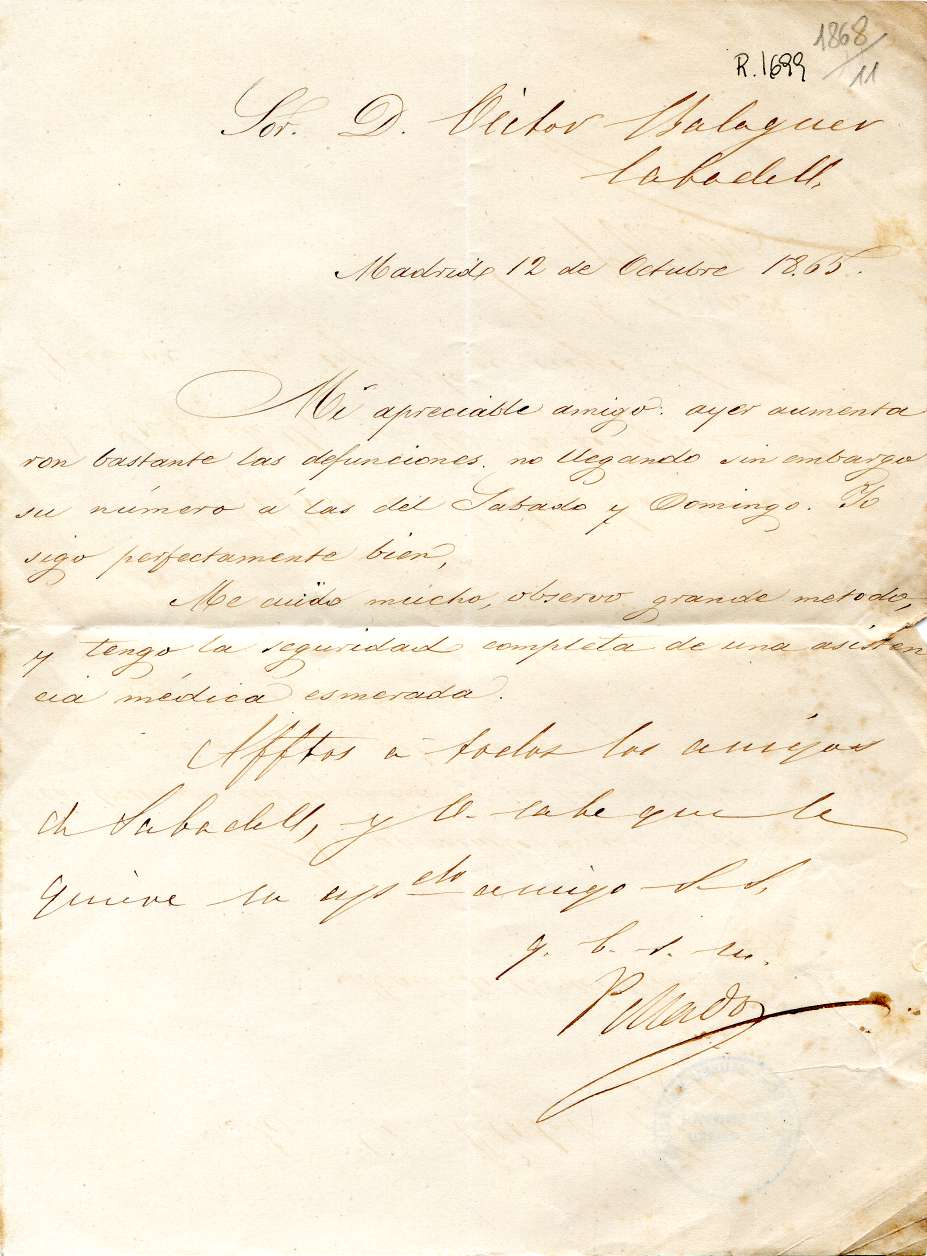 1868/11
R.1699
Sor. D. Víctor Balaguer
Sabadell,
Madrid 12 de Octubre 1865.
Mi apreciable amigo: ayer aumenta
ron bastante las defunciones. no llegando sin embargo
su número á las del Sabado y Domingo. Yo
sigo perfectamente bien,
Me cuido mucho, observo grande metodo,
y tengo la seguridad completa de una asisten
cia médica esmerada.
Afftos a todos los amigos
de Sabadell, y V. sabe que le
quiere su apdo amigo S. S.
q. b. s. m.